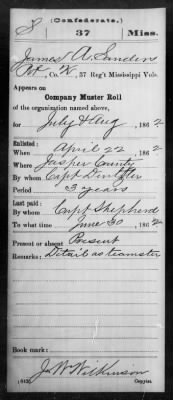 (Confederate.)
S 37 Miss.
James A. Sanders
Pvt, Co. , 37 Reg't Mississippi Vols.
Appears on
Company Muster Roll
of the organization named above,
for July & Aug, 186 2
Enlisted:
When April 22, 186 2
Where Jasper County
By whom Capt
Period 3 years
Last paid:
By whom Capt Shepherd
To what time June 30, 186 2
Present or absent Present
Remarks: Detail as teamster
Book mark:
J. W. Wilkinson
Copyist.